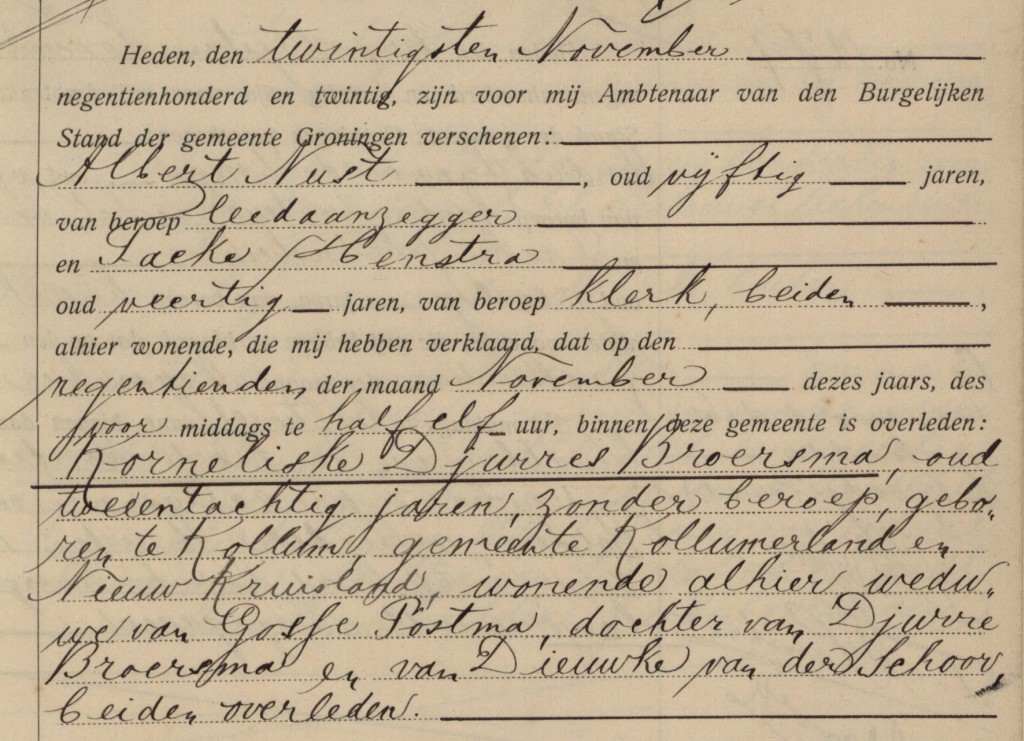 Heden, den twintigsten November
negentienhonderd en twintig, zijn voor mij Ambtenaar van den Burgelijken
Stand der gemeente Groningen verschenen:
Albert Nust, oud vijftig jaren,
van beroep leedaanzegger
en Sacke Henstra
oud veertig jaren, van beroep klerk, beiden,
alhier wonende, die mij hebben verklaard, dat op den
negentienden der maand November dezes jaars, des
voor middags te half elf uur, binnen deze gemeente is overleden:
Korneliske Djurres Broersma, oud
tweeentachtig jaren, zonder beroep, gebo„
ren te Kollum, gemeente Kollumerland en
Nieuw Kruisland, wonende alhier, wedu„
we van Gosse Postma, dochter van Djurre
Broersma en van Dieuwke van der Schoor,
beiden overleden.